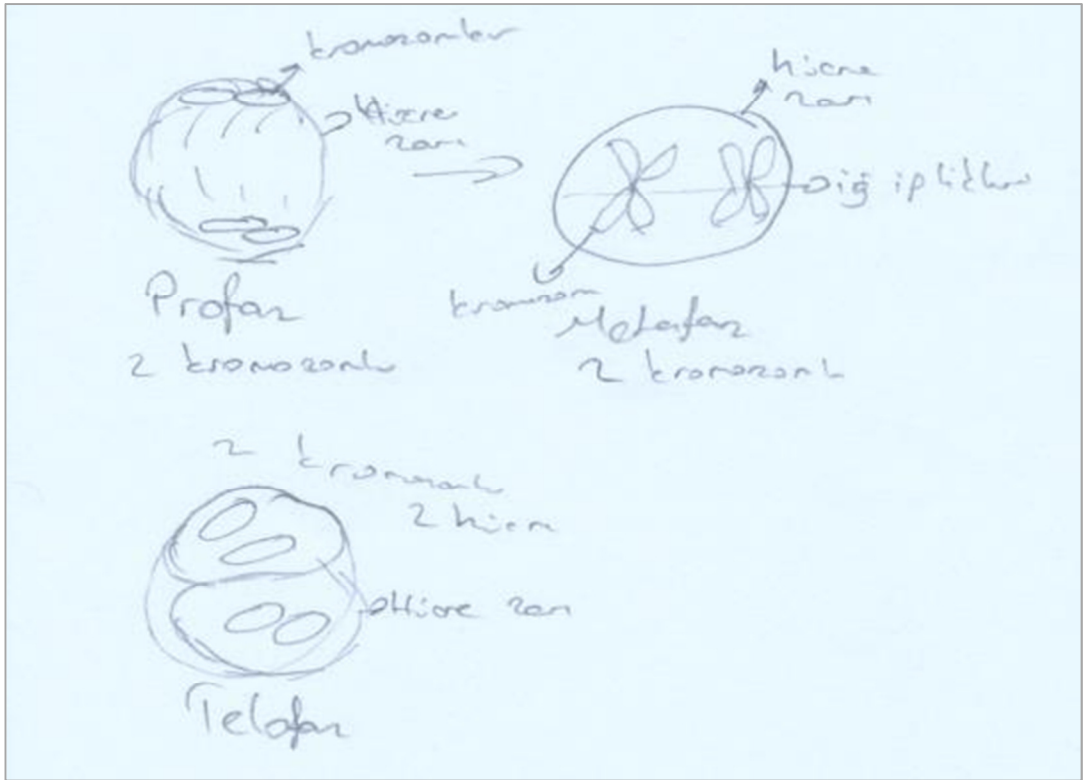 kromozomlar
Hücre
zarı
Profaz
2 kromozomlu
hücre
zarı
iğ iplikleri
kromozom
Metafaz
2 kromozomlu
2 kromozomlu
2 hücre
Hücre zarı
Telofaz